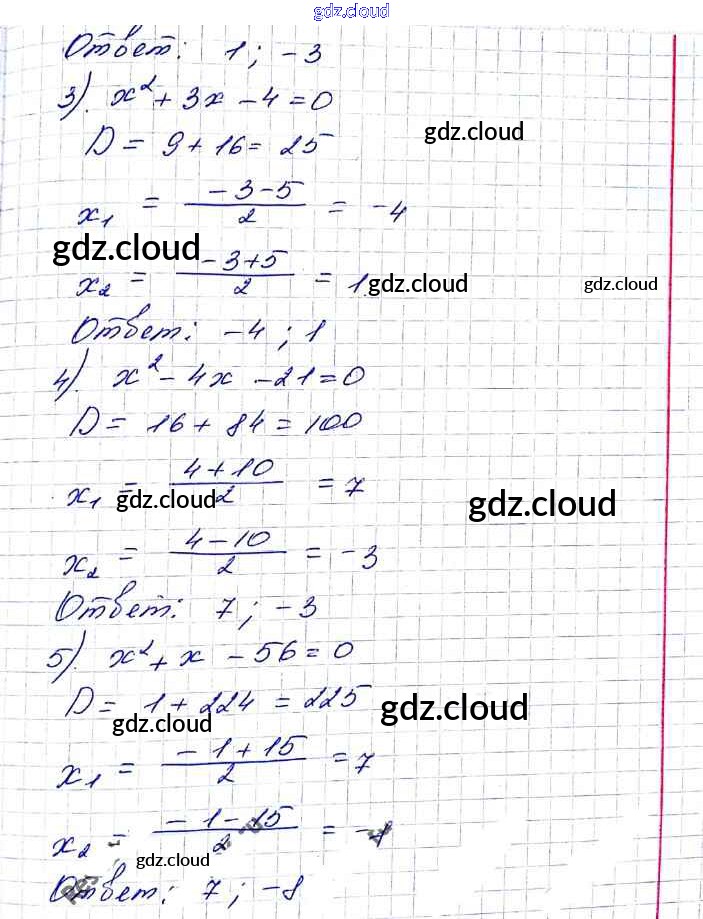 gdz.cloud
Ответ: 1; -3
3). x² + 3x - 4 = 0
gdz.cloud
D = 9 + 16 = 25
x₁ = (-3-5)/2 = -4
gdz.cloud
x₂ = (-3+5)/2 = 1
gdz.cloud
gdz.cloud
Ответ: -4; 1
4). x² - 4x - 21 = 0
D = 16 + 84 = 100
x₁ = (4+10)/2 = 7
gdz.cloud
gdz.cloud
x₂ = (4-10)/2 = -3
Ответ: 7; -3
5). x² + x - 56 = 0
D = 1 + 224 = 225
gdz.cloud
gdz.cloud
x₁ = (-1+15)/2 = 7
x₂ = (-1-15)/2 = -8
gdz.cloud
Ответ: 7; -8